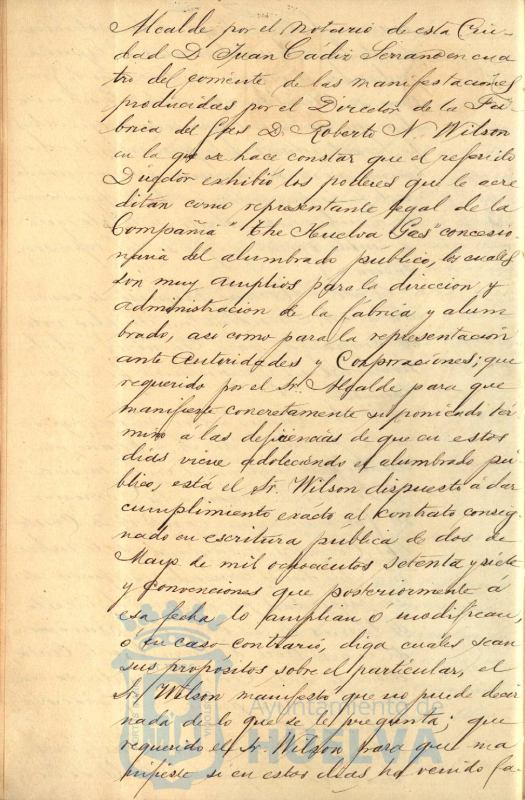 Alcalde por el notario de esta Ciu-
dad D. Juan Cádiz Serrano en cua
tro del corriente, de las manifestaciones
producidas por el Director de la Fá-
brica del Gas D. Roberto N. Wilson
en la que se hace constar que el referido
Director exhibió los poderes que le acre
ditan como representante legal de la
Compañia "The Huelva Gas" concesio
naria del alumbrado público, los cuales
son muy amplios para la direccion y
administracion de la fábrica y alum
brado, así como para la representación
ante Autoridades y Corporaciones; que
requerido por el Sr. Alcalde para que
manifieste concretamente si poniendo tér
mino á las deficiencias de que en estos
días viene adoleciendo el alumbrado pú
blico, está el Sr. Wilson dispuesto á dar
cumplimiento exacto al contrato consig
nado en escritura pública de dos de
Mayo de mil ochocientos setenta y siete
y convenciones que posteriormente á
esa fecha lo amplian ó modifican,
ó en caso contrario, diga cuales sean
sus propósitos sobre el particular, el
Sr. Wilson manifestó que no puede decir
nada de lo que se le pregunta; que
requerido el Sr. Wilson para que ma
nifieste si en estos dias ha venido fa-
Ayuntamiento de
HUELVA